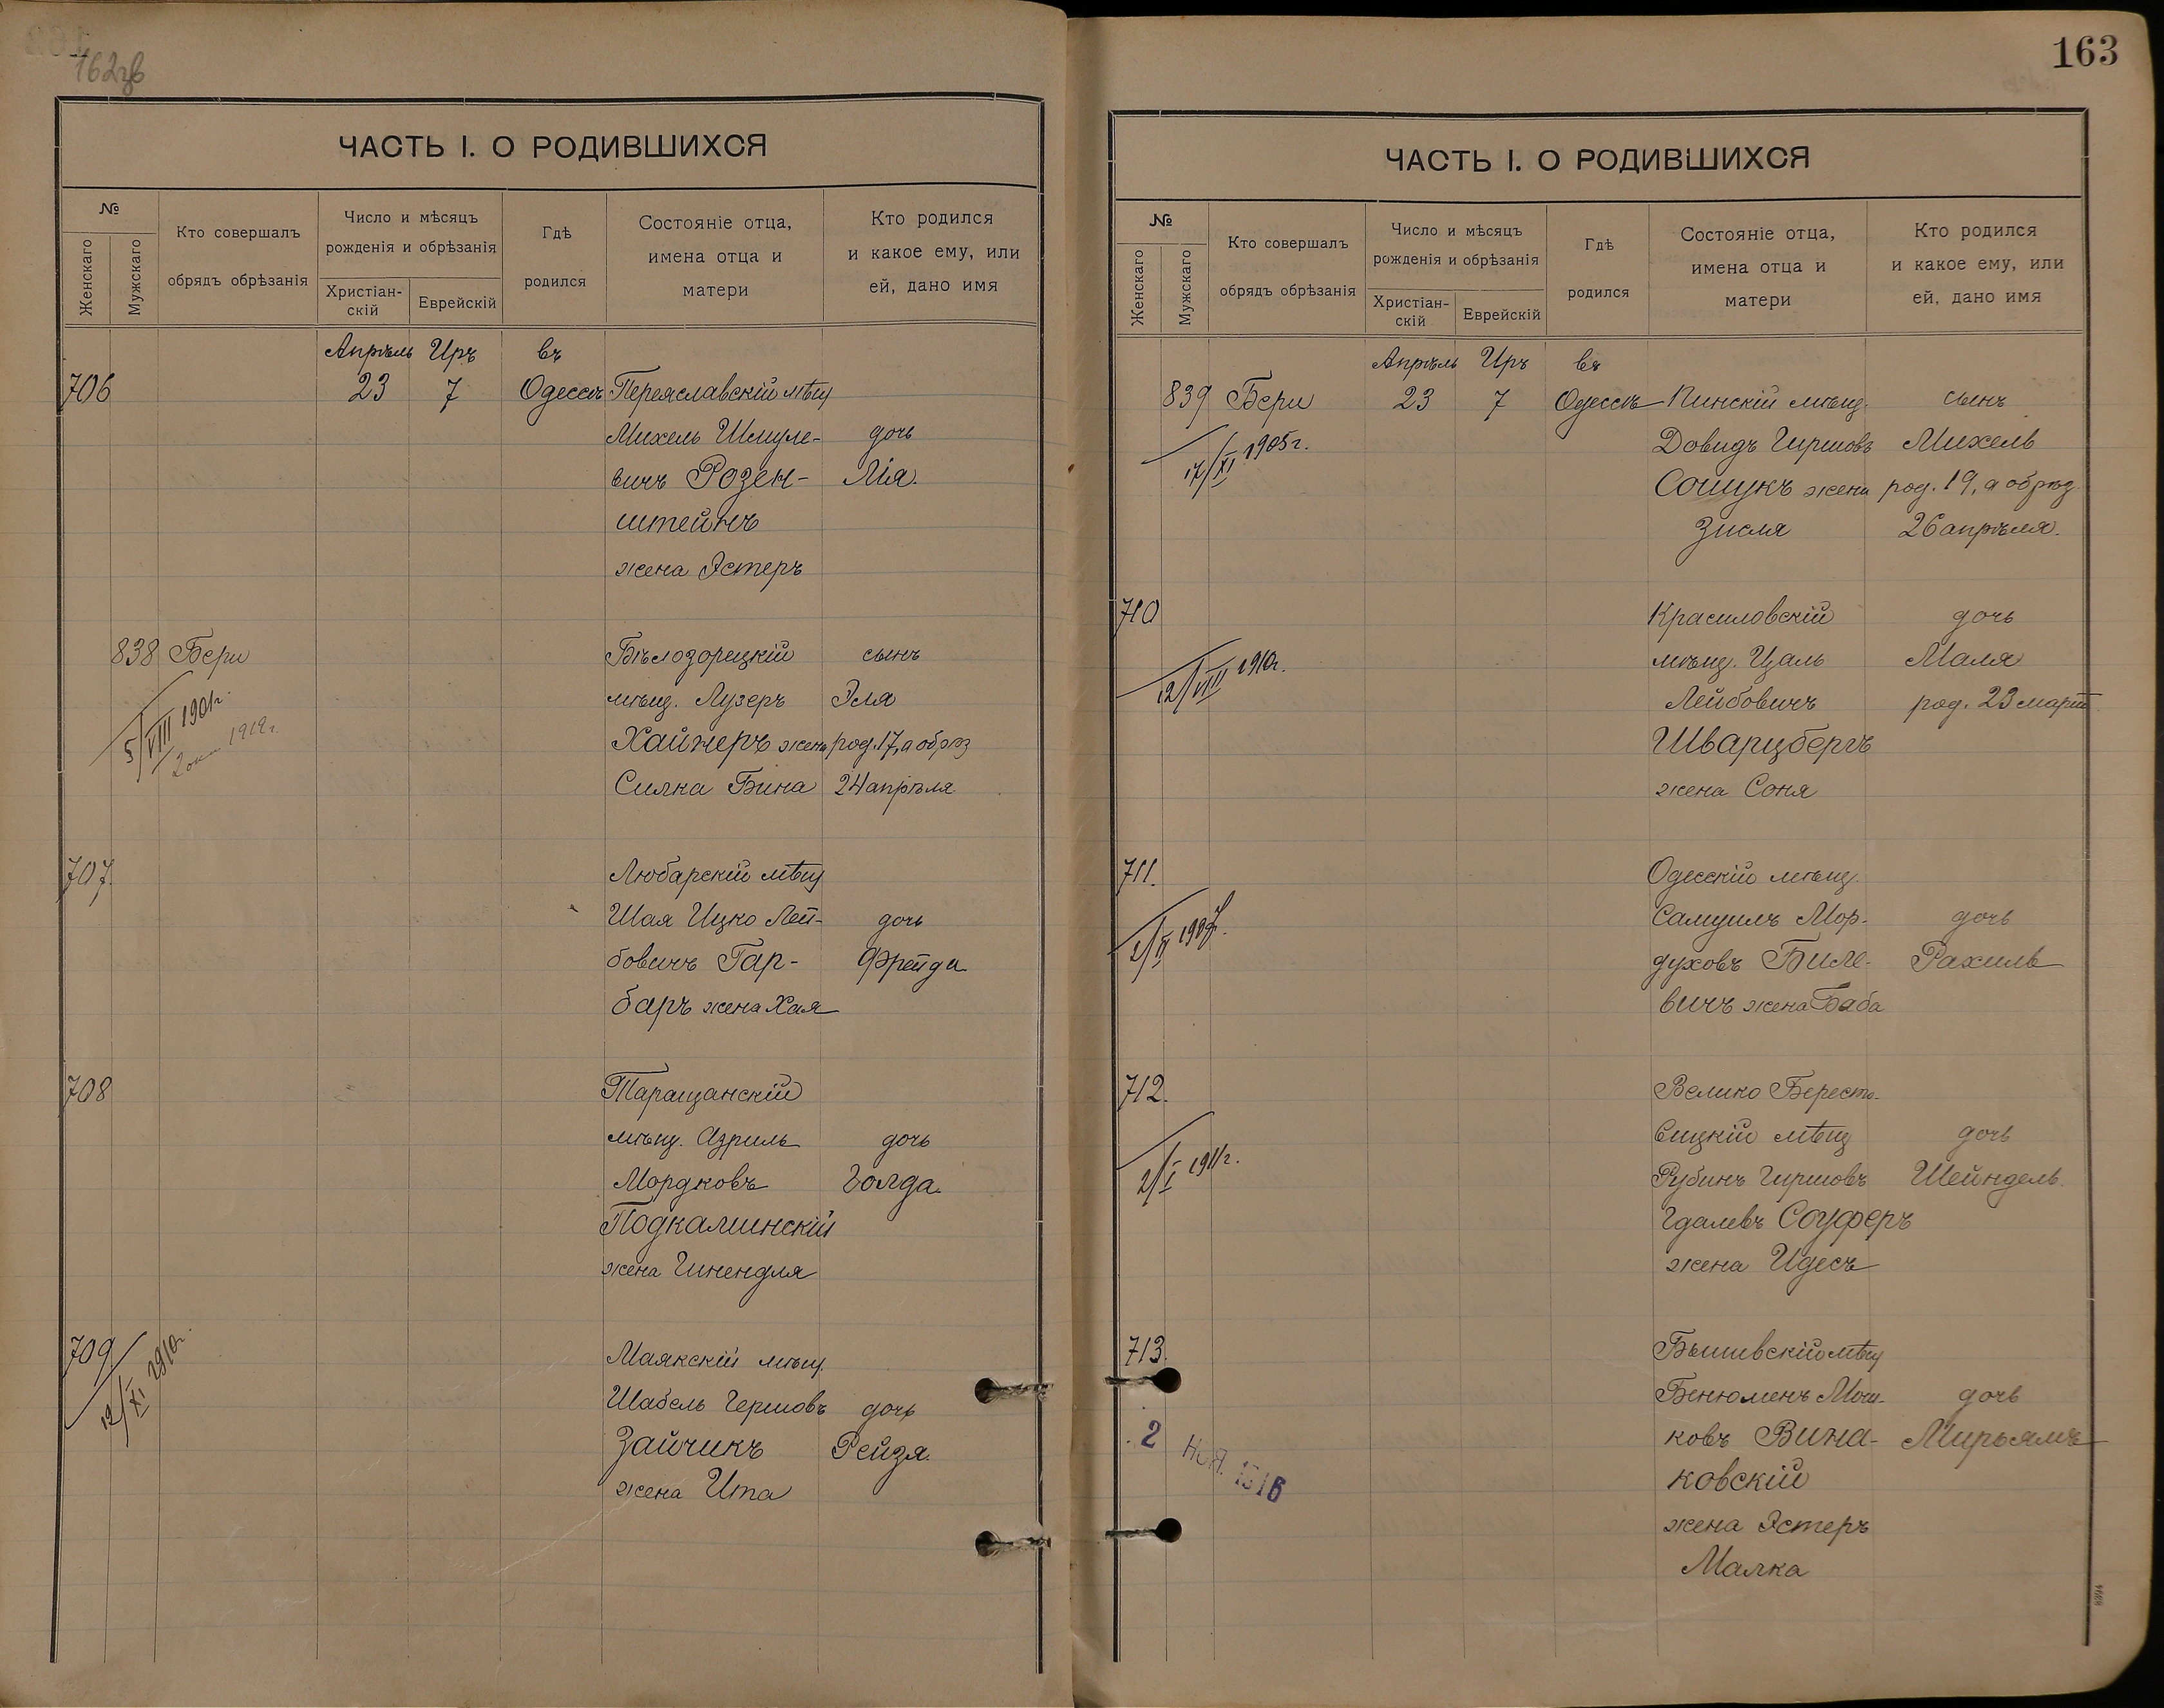 162зв
ЧАСТЬ I. О РОДИВШИХСЯ
№
Женскаго
Мужскаго
Кто совершалъ
обрядъ обрѣзанія
Число и мѣсяцъ
рожденія и обрѣзанія
Христіан-
скій
Еврейскій
Гдѣ
родился
Состояніе отца,
имена отца и
матери
Кто родился
и какое ему, или
ей, дано имя
Апрѣль Иръ въ
706 23 7 Одессѣ Переяславскій мѣщ
Михель Шмуле- дочь
вичъ Розен- Лія.
штейнъ
жена Эстеръ
838 Бери Бѣлозорецкій сынъ
мѣщ. Лузеръ Эля
5/VIII 1901г.
Хайнеръ жена род. 17, а обрѣз
Силка Бина 24 апрѣля
707. Любарскій мѣщ
Шая Ицко Лей- дочь
бовичъ Гар- Фрейда
баръ жена Хая
708 Таращанскій
мѣщ. Азриль дочь
Мордковъ Голда.
Подкаминскій
жена Гинендля
709 Маякскій мѣщ.
12/XI 1910г.
Шабель Гершовъ дочь
Зайчикъ Рейзя.
жена Ита
163
ЧАСТЬ I. О РОДИВШИХСЯ
№
Женскаго
Мужскаго
Кто совершалъ
обрядъ обрѣзанія
Число и мѣсяцъ
рожденія и обрѣзанія
Христіан-
скій
Еврейскій
Гдѣ
родился
Состояніе отца,
имена отца и
матери
Кто родился
и какое ему, или
ей, дано имя
Апрѣль Иръ въ
839 Бери 23 7 Одессѣ Пинскій мѣщ. сынъ
17/XI 1905г.
Довидъ Гиршовъ Михель
Сошукъ жена род. 19, а обрѣз.
Зисля 26 апрѣля.
710 Красиловскій дочь
12/VIII 1910г.
мѣщ. Цаль Маля
Лейбовичъ род. 23 март
Шварцбергъ
жена Соня
711. Одесскій мѣщ.
Самуилъ Мор- дочь
духовъ Биле- Рахиль
вичъ жена Баба
712. Велико Бересто-
вицкій мѣщ дочь
2/I 1911г.
Рубинъ Гиршовъ Шейндель.
Гдалевъ Соуферъ
жена Идесъ
713. Бышевскій мѣщ
Бенюменъ Мош- дочь
2 НОЯ. 1916
ковъ Вина- Мирьямъ
ковскій
жена Эстеръ
Малка